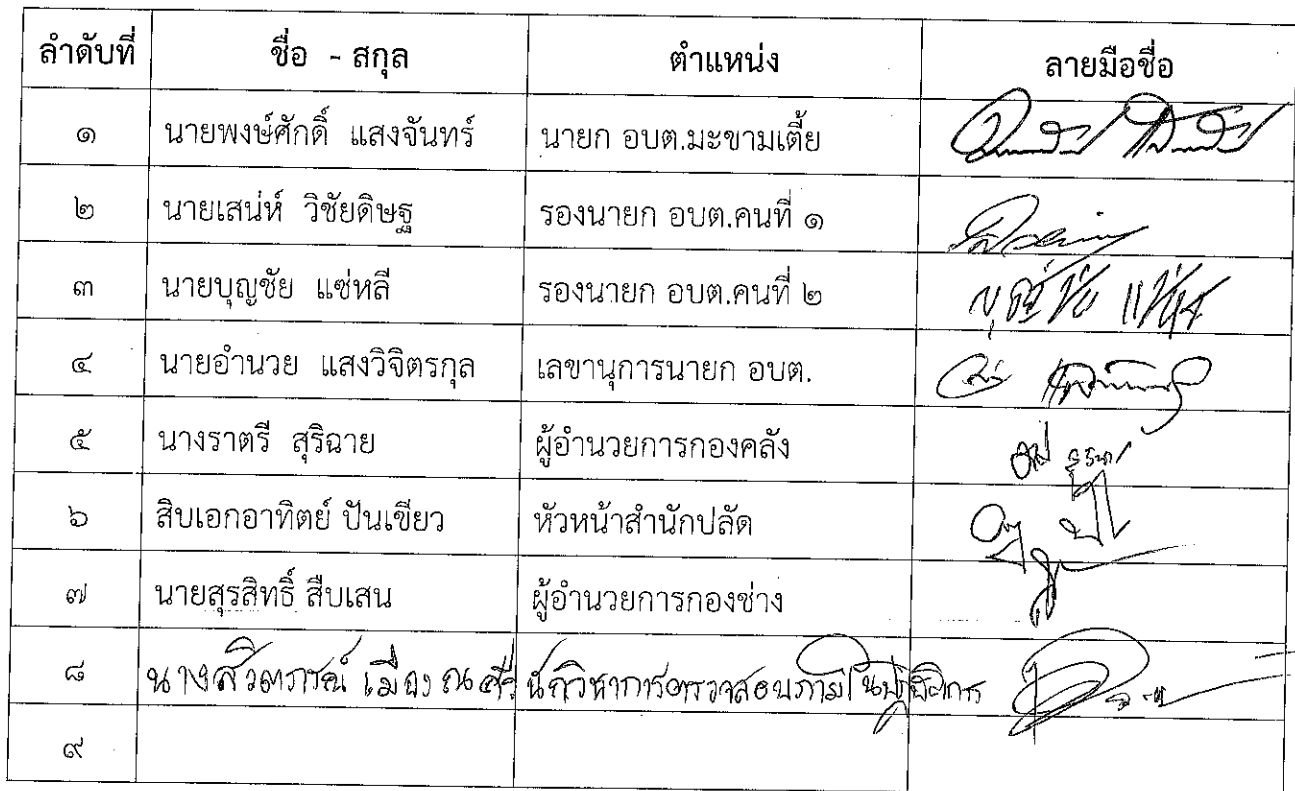 ลำดับที่ ชื่อ - สกุล ตำแหน่ง ลายมือชื่อ
๑ นายพงษ์ศักดิ์ แสงจันทร์ นายก อบต.มะขามเตี้ย
๒ นายเสน่ห์ วิชัยดิษฐ รองนายก อบต.คนที่ ๑
๓ นายบุญชัย แซ่หลี รองนายก อบต.คนที่ ๒ บุญชัย แซ่หลี
๔ นายอำนวย แสงวิจิตรกุล เลขานุการนายก อบต.
๕ นางราตรี สุริฉาย ผู้อำนวยการกองคลัง
๖ สิบเอกอาทิตย์ ปันเขียว หัวหน้าสำนักปลัด
๗ นายสุรสิทธิ์ สืบเสน ผู้อำนวยการกองช่าง
๘ นาง เมือง ณ ศรี นักวิชาการตรวจสอบภายในปฏิบัติการ
๙